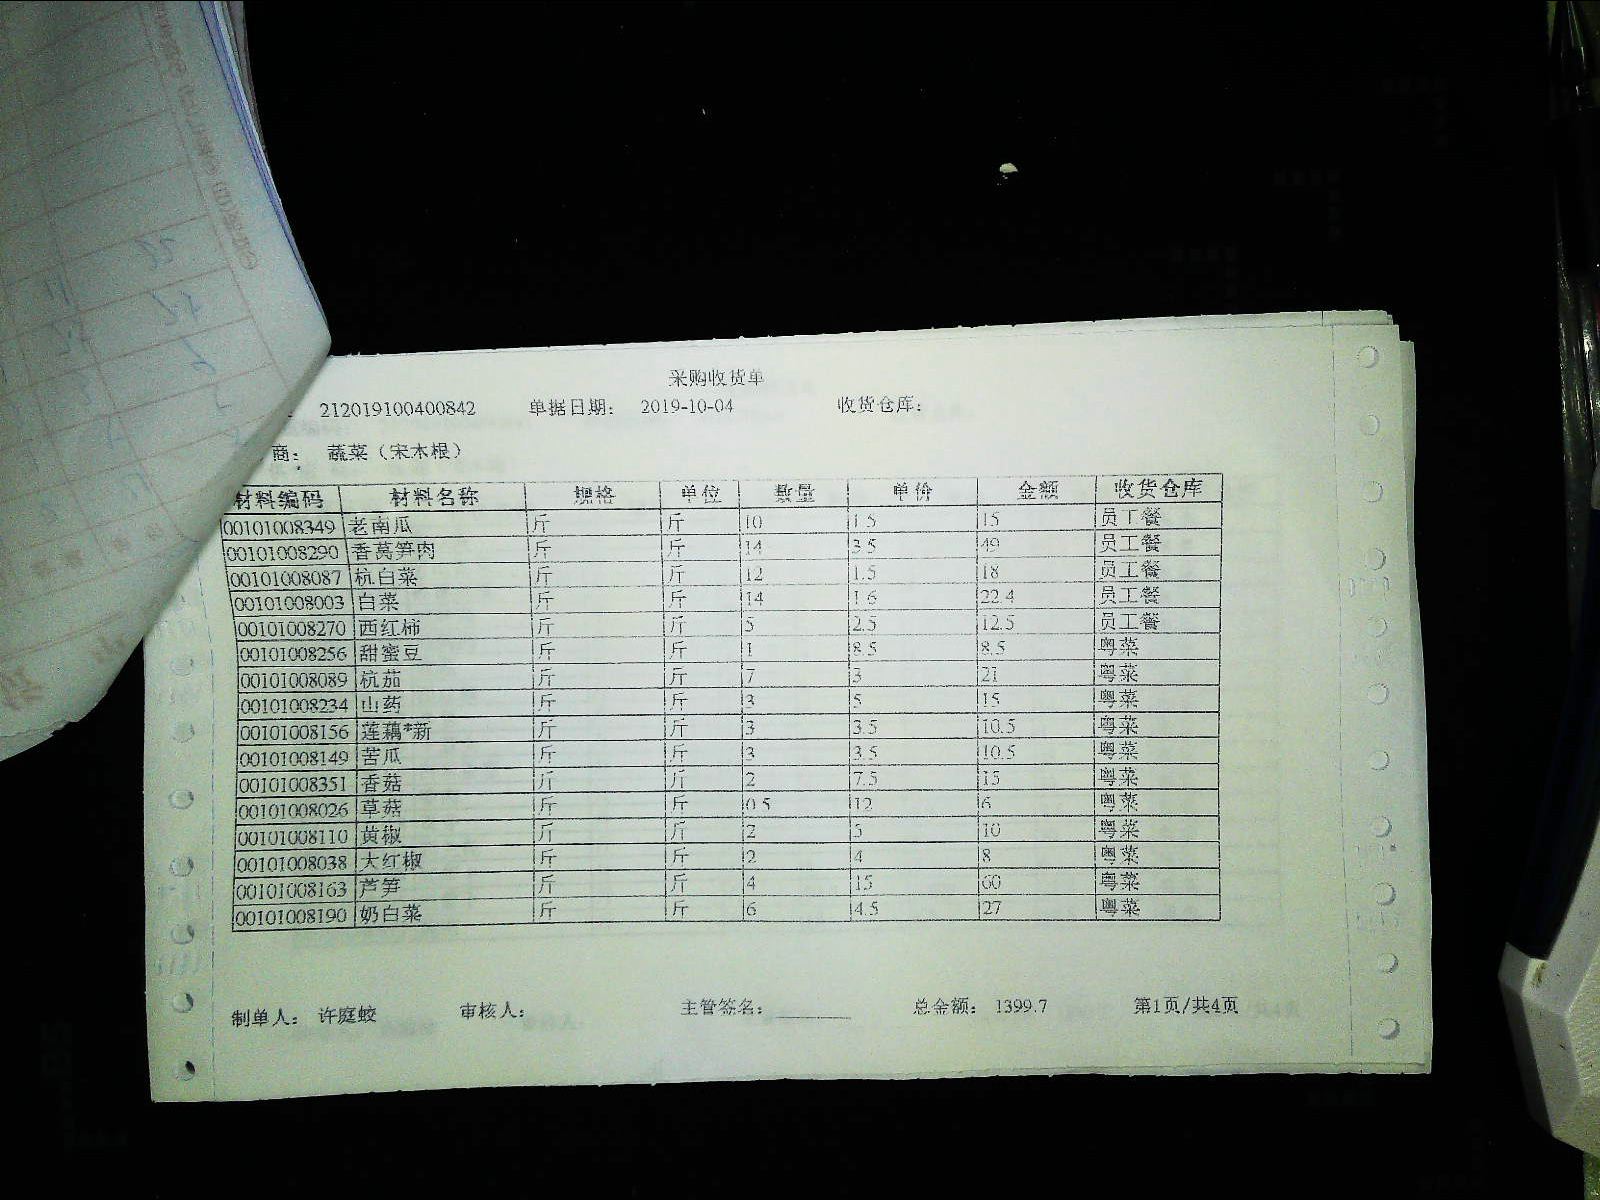 采购收货单
212019100400842 单据日期： 2019-10-04 收货仓库：
商： 蔬菜（宋本根）
材料编码 材料名称 规格 单位 数量 单价 金额 收货仓库
00101008349 老南瓜 斤 斤 10 1.5 15 员工餐
00101008290 香莴笋肉 斤 斤 14 3.5 49 员工餐
00101008087 杭白菜 斤 斤 12 1.5 18 员工餐
00101008003 白菜 斤 斤 14 1.6 22.4 员工餐
00101008270 西红柿 斤 斤 5 2.5 12.5 员工餐
00101008256 甜蜜豆 斤 斤 1 8.5 8.5 粤菜
00101008089 杭茄 斤 斤 7 3 21 粤菜
00101008234 山药 斤 斤 3 5 15 粤菜
00101008156 莲藕*新 斤 斤 3 3.5 10.5 粤菜
00101008149 苦瓜 斤 斤 3 3.5 10.5 粤菜
00101008351 香菇 斤 斤 2 7.5 15 粤菜
00101008026 草菇 斤 斤 0.5 12 6 粤菜
00101008110 黄椒 斤 斤 2 5 10 粤菜
00101008038 大红椒 斤 斤 2 4 8 粤菜
00101008163 芦笋 斤 斤 4 15 60 粤菜
00101008190 奶白菜 斤 斤 6 4.5 27 粤菜
制单人： 许庭蛟 审核人： 主管签名： 总金额： 1399.7 第1页/共4页